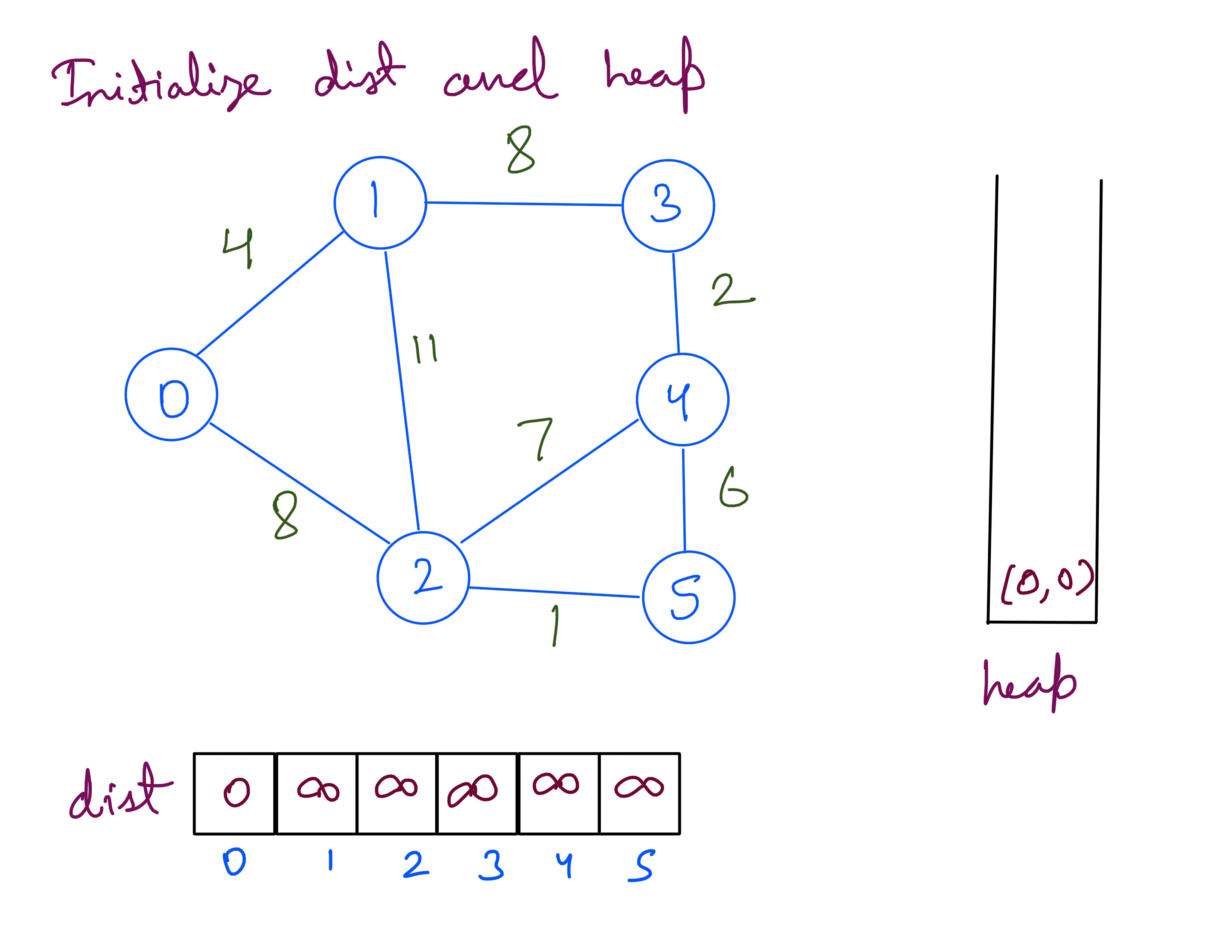 Initialize dist and heap
8
1
3
4
2
11
0
4
7
6
8
2
5
1
(0,0)
heap
dist 0 ∞ ∞ ∞ ∞ ∞
0 1 2 3 4 5